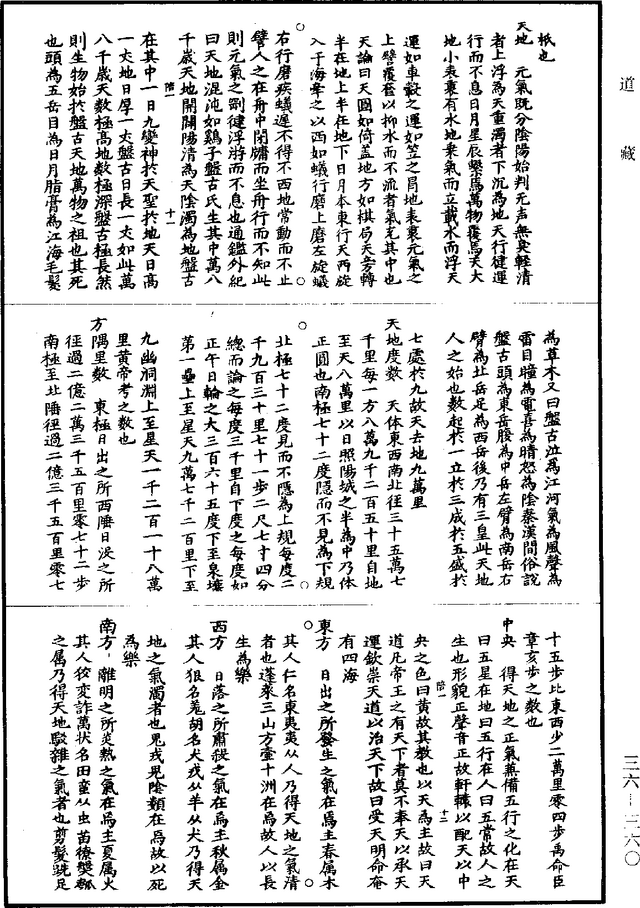 道藏
祇也
天地　元氣既分陰陽始判元声無臭輕清
者上浮為天重濁者下沉為地天行健運
行而不息日月星辰繫焉萬物覆焉天大
地小表裏有水地乗氣而立載水而浮天
運如車轂之運如笠之冐地表裏元氣之
上譬覆奩以抑水而不流者氣充其中也
天論曰天圓如倚盖地方如棋局天旁轉
半在地上半在地下日月本東行天西旋
入于海牽之以西如蟻行磨上磨左旋蟻
右行磨疾蟻遲不得不西地常動而不止
譬人之在舟中閉牖而坐舟行而不知此
則元氣之劉健浮游而不息也通鑑外紀
曰天地混沌如鷄子盤古氏生其中萬八
千歲天地開闢陽清為天陰濁為地盤古
階一　十一
在其中一日九變神於天聖於地天日高
一丈地日厚一丈盤古日長一丈如此萬
八千歲天數極高地數極深盤古極長然
則生物始於盤古天地萬物之祖也其死
也頭為五岳目為日月脂膏為江海毛髮
為草木又曰盤古泣為江河氣為風聲為
雷目瞳為電喜為晴怒為陰秦漢間俗說
盤古頭為東岳腹為中岳左臂為南岳右
臂為北岳足為西岳後乃有三皇此天地
人之始也數起於一立於三成於五盛於
七處於九故天去地九萬里
天地度數　天体東西南北徑三十五萬七
千里每一方八萬九千二百五十里自地
至天八萬里以日照陽城之半為中乃体
正圓也南極七十二度隱而不見為下規
北極七十二度見而不隱為上規每度二
千九百三十里七十一步二尺七寸四分
總而論之每度三千里自下度之每度如
正午日輪之大三百六十五度下至泉壤
第一壘上至星天九萬七千二百里下至
九幽洞淵上至星天一千二百一十八萬
里黄帝考之數也
方隅里數　東極日出之所西陲日没之所
徑過二億二萬三千五百里零七十二步
南極至北陲徑過二億三千五百里零七
十五步比東西少二萬里零四步禹命臣
章亥步之數也
中央　得天地之正氣蒸備五行之化在天
曰五星在地曰五行在人曰五常故人之
生也形貌正聲音正故軒轅以配天以中
階一　十二
央之色曰黄故其教也以天為主故曰天
道凡帝王之有天下者莫不奉天以承天
運欽崇天道以治天下故曰受天明命奄
有四海
東方　日出之所發生之氣在焉主春属木
其人仁名東夷夷从人乃得天地之氣清
者也蓬萊三山方壷十洲在焉故人以長
生為樂
西方　日落之所肅殺之氣在焉主秋属金
其人狠名羗胡名犬戎从羊从犬乃得天
地之氣濁者也鬼戎鬼陰類在焉故以死
為樂
南方　離明之所炎熱之氣在焉主夏属火
其人狡变詐萬状名曰蠻从虫苗獠僰
之属乃得天地駁雜之氣者也剪髮跣足
三六—三六〇